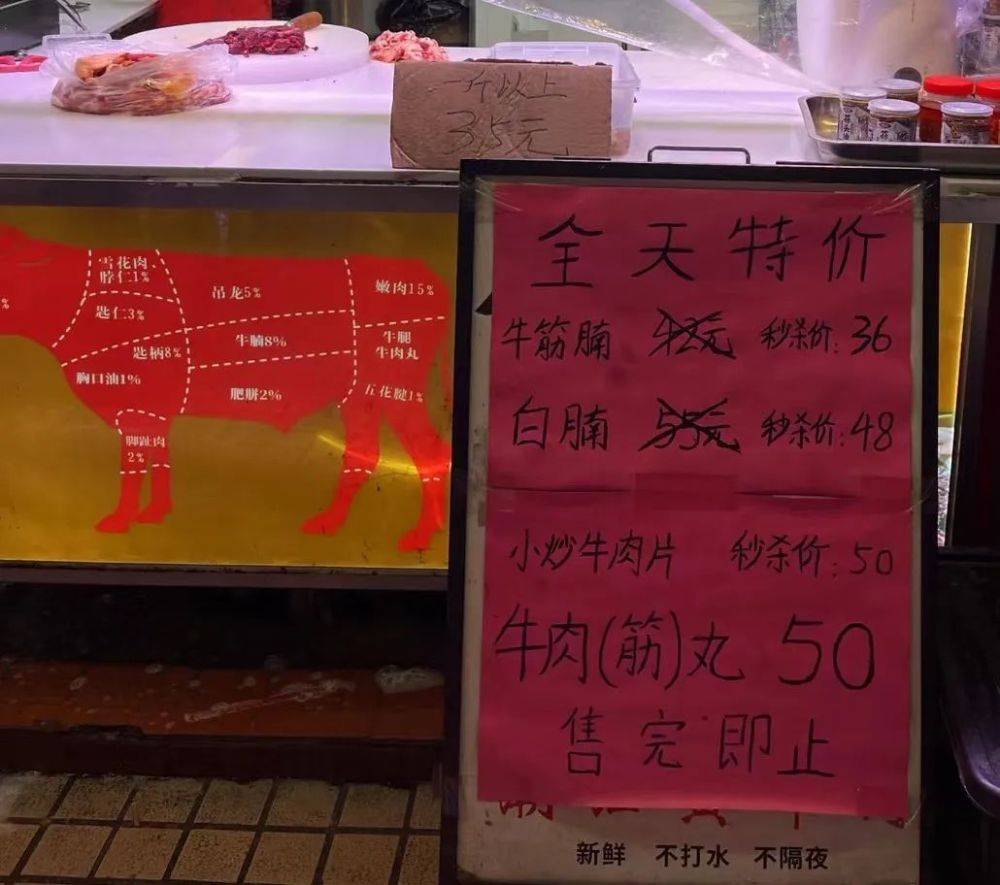 一斤以上
35元
雪花肉、
脖仁1%
匙仁3%
匙柄8%
胸口油1%
脚趾肉
2%
吊龙5%
牛腩8%
肥胼2%
嫩肉15%
牛腿
牛肉丸
五花腱1%
%
全天特价
牛筋腩 42元 秒杀价:36
白腩 55元 秒杀价:48
小炒牛肉片 秒杀价:50
牛肉(筋)丸 50
售完即止
新鲜 不打水 不隔夜